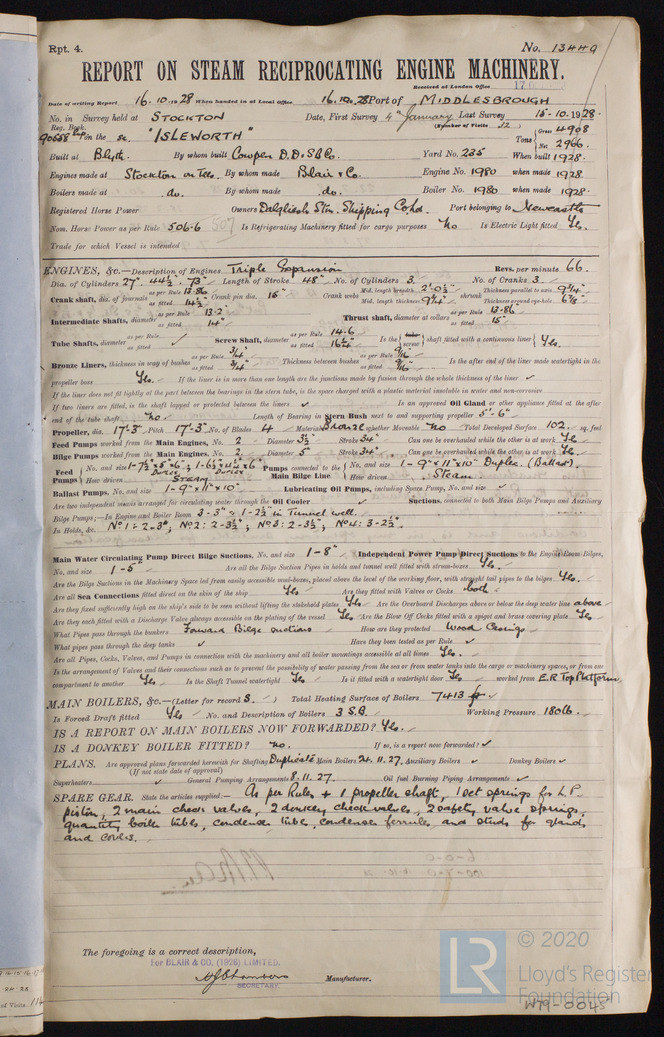 Rpt. 4.
No. 13449
REPORT ON STEAM RECIPROCATING ENGINE MACHINERY.
Received at London Office 17
Date of writing Report 16.10.1928 When handed in at Local Office 16.10.28 Port of MIDDLESBROUGH
No. in Survey held at STOCKTON Date, First Survey 4th January Last Survey 15.10.1928
Reg. Book. (Number of Visits 32)
90658 Sup on the sc. "ISLEWORTH" Tons { Gross 4908 Net 2966
Built at Blyth. By whom built Cowpen D.D & SB Co. Yard No. 235 When built 1928
Engines made at Stockton on Tees. By whom made Blair & Co. Engine No. 1980 when made 1928
Boilers made at do. By whom made do. Boiler No. 1980 when made 1928
Registered Horse Power Owners Dalgliesh Stm. Shipping Co. Ltd. Port belonging to Newcastle
Nom. Horse Power as per Rule 506.6 507 Is Refrigerating Machinery fitted for cargo purposes No Is Electric Light fitted Yes.
Trade for which Vessel is intended
ENGINES, &c.—Description of Engines Triple Expansion Revs. per minute 66.
Dia. of Cylinders 27" 44½" 73" Length of Stroke 48" No. of Cylinders 3. No. of Cranks 3.
Crank shaft, dia. of journals as per Rule 13.86 as fitted 14½" Crank pin dia. 15" Crank webs Mid. length breadth 2'-0½" Mid. length thickness 9¼" shrunk Thickness parallel to axis 9¼" Thickness around eye-hole 6⅞"
Intermediate Shafts, diameter as per Rule 13.2 as fitted 14" Thrust shaft, diameter at collars as per Rule 13.86 as fitted 15"
Tube Shafts, diameter as per Rule as fitted Screw Shaft, diameter as per Rule 14.6 as fitted 16¼" Is the { tube screw } shaft fitted with a continuous liner { Yes.
Bronze Liners, thickness in way of bushes as per Rule 3/4" as fitted 3/4" Thickness between bushes as per Rule 9/16 as fitted 9/16" Is the after end of the liner made watertight in the
propeller boss Yes. If the liner is in more than one length are the junctions made by fusion through the whole thickness of the liner ✓
If the liner does not fit tightly at the part between the bearings in the stern tube, is the space charged with a plastic material insoluble in water and non-corrosive
If two liners are fitted, is the shaft lapped or protected between the liners ✓ Is an approved Oil Gland or other appliance fitted at the after
end of the tube shaft No Length of Bearing in Stern Bush next to and supporting propeller 5'-6"
Propeller, dia. 17'-3" Pitch 17'-3" No. of Blades 4 Material Bronze whether Moveable No Total Developed Surface 102 sq. feet
Feed Pumps worked from the Main Engines, No. 2 Diameter 3½" Stroke 34" Can one be overhauled while the other is at work Yes
Bilge Pumps worked from the Main Engines, No. 2 Diameter 5" Stroke 34" Can one be overhauled while the other is at work Yes
Feed Pumps { No. and size How driven STEAM Pumps connected to the Main Bilge Line { No. and size 1 - 9" x 11" x 10" Duplex. (Ballast). How driven Steam.
Ballast Pumps, No. and size 1 - 9" x 11" x 10" Lubricating Oil Pumps, including Spare Pump, No. and size ✓
Are two independent means arranged for circulating water through the Oil Cooler ✓ Suctions, connected to both Main Bilge Pumps and Auxiliary
Bilge Pumps;—In Engine and Boiler Room 3 - 3" & 1 - 2½" in Tunnel well.
In Holds, &c. No1: 2-3", No2: 2-3½", No3: 2-3½", No4: 3-2½".
Main Water Circulating Pump Direct Bilge Suctions, No. and size 1 - 8" Independent Power Pump Direct Suctions to the Engine Room Bilges,
No. and size 1 - 5" Are all the Bilge Suction Pipes in holds and tunnel well fitted with strum-boxes Yes.
Are the Bilge Suctions in the Machinery Space led from easily accessible mud-boxes, placed above the level of the working floor, with straight tail pipes to the bilges Yes.
Are all Sea Connections fitted direct on the skin of the ship Yes Are they fitted with Valves or Cocks both
Are they fixed sufficiently high on the ship's side to be seen without lifting the stokehold plates Yes Are the Overboard Discharges above or below the deep water line above
Are they each fitted with a Discharge Valve always accessible on the plating of the vessel Yes Are the Blow Off Cocks fitted with a spigot and brass covering plate Yes
What Pipes pass through the bunkers Forward Bilge suctions How are they protected Wood Casings
What pipes pass through the deep tanks ✓ Have they been tested as per Rule ✓
Are all Pipes, Cocks, Valves, and Pumps in connection with the machinery and all boiler mountings accessible at all times Yes.
Is the arrangement of Valves and their connections such as to prevent the possibility of water passing from the sea or from water tanks into the cargo or machinery spaces, or from one
compartment to another Yes Is the Shaft Tunnel watertight Yes Is it fitted with a watertight door Yes worked from E.R Top Platform
MAIN BOILERS, &c.—(Letter for record S.) Total Heating Surface of Boilers 7413
Is Forced Draft fitted Yes No. and Description of Boilers 3 S.B. Working Pressure 180 lb.
IS A REPORT ON MAIN BOILERS NOW FORWARDED? Yes.
IS A DONKEY BOILER FITTED? No. If so, is a report now forwarded? ✓
PLANS. Are approved plans forwarded herewith for Shafting Duplicate Main Boilers 24.11.27. Auxiliary Boilers ✓ Donkey Boilers ✓
(If not state date of approval)
Superheaters General Pumping Arrangements 8.11.27. Oil fuel Burning Piping Arrangements ✓
SPARE GEAR. State the articles supplied:— As per Rules + 1 propeller shaft, 1 set springs for L.P.
piston, 2 main check valves, 2 donkey check valves, 2 safety valve springs,
quantity boiler tubes, condenser tubes, condenser ferrules, and studs for glands
and covers.
The foregoing is a correct description,
For BLAIR & CO. (1926) LIMITED.
Manufacturer.
SECRETARY.
© 2020
LR
Lloyd's Register
Foundation
W79-0045